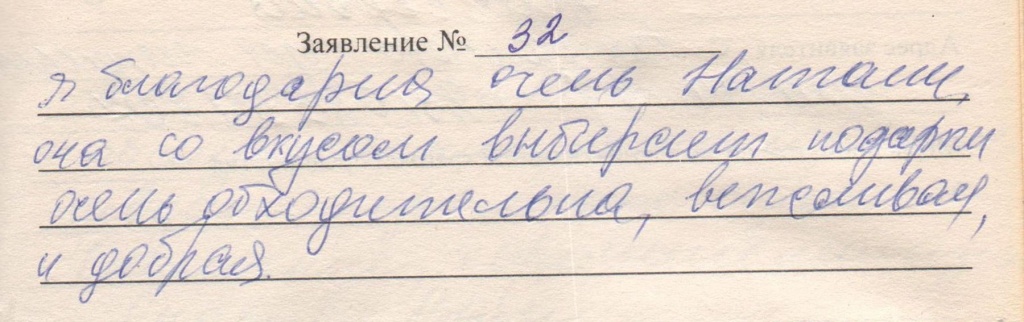 Заявление № 32
я благодарна очень Натали,
она со вкусом выбирает подарки
очень обходительна, вежливая,
и добрая.